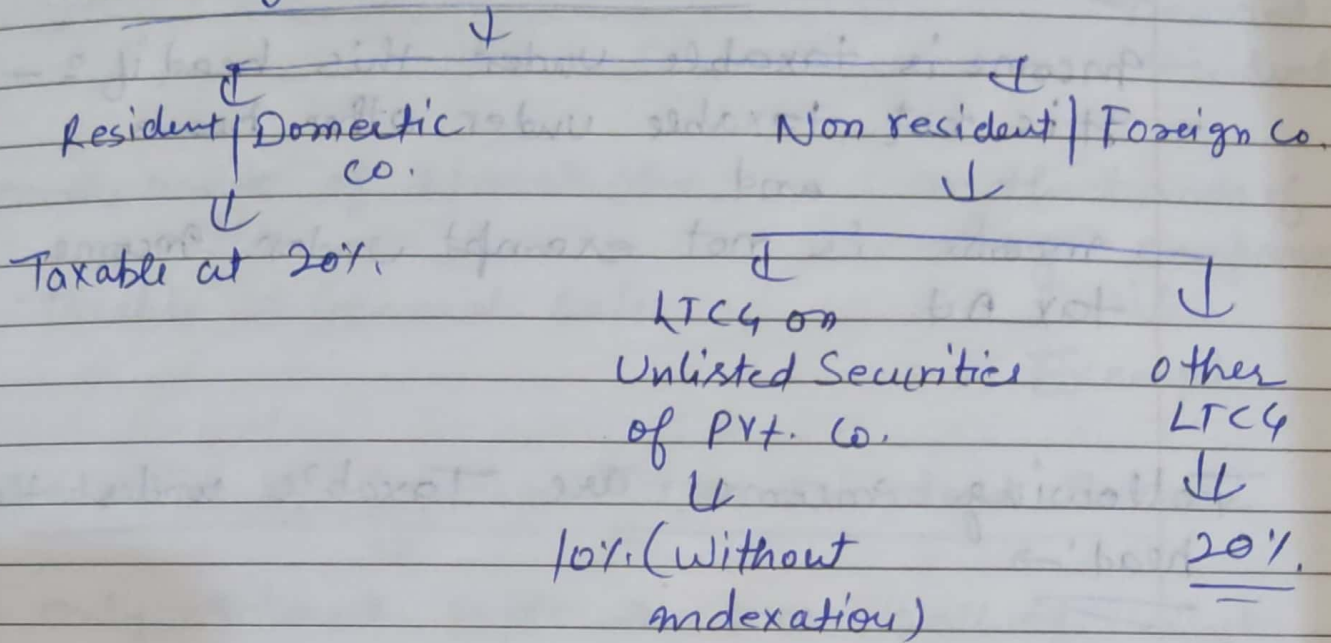 Resident | Domestic
co.
Non resident | Foreign Co.
Taxable at 20%.
LTCG on
Unlisted Securities
of Pvt. Co.
10% (Without
indexation)
other
LTCG
20%.